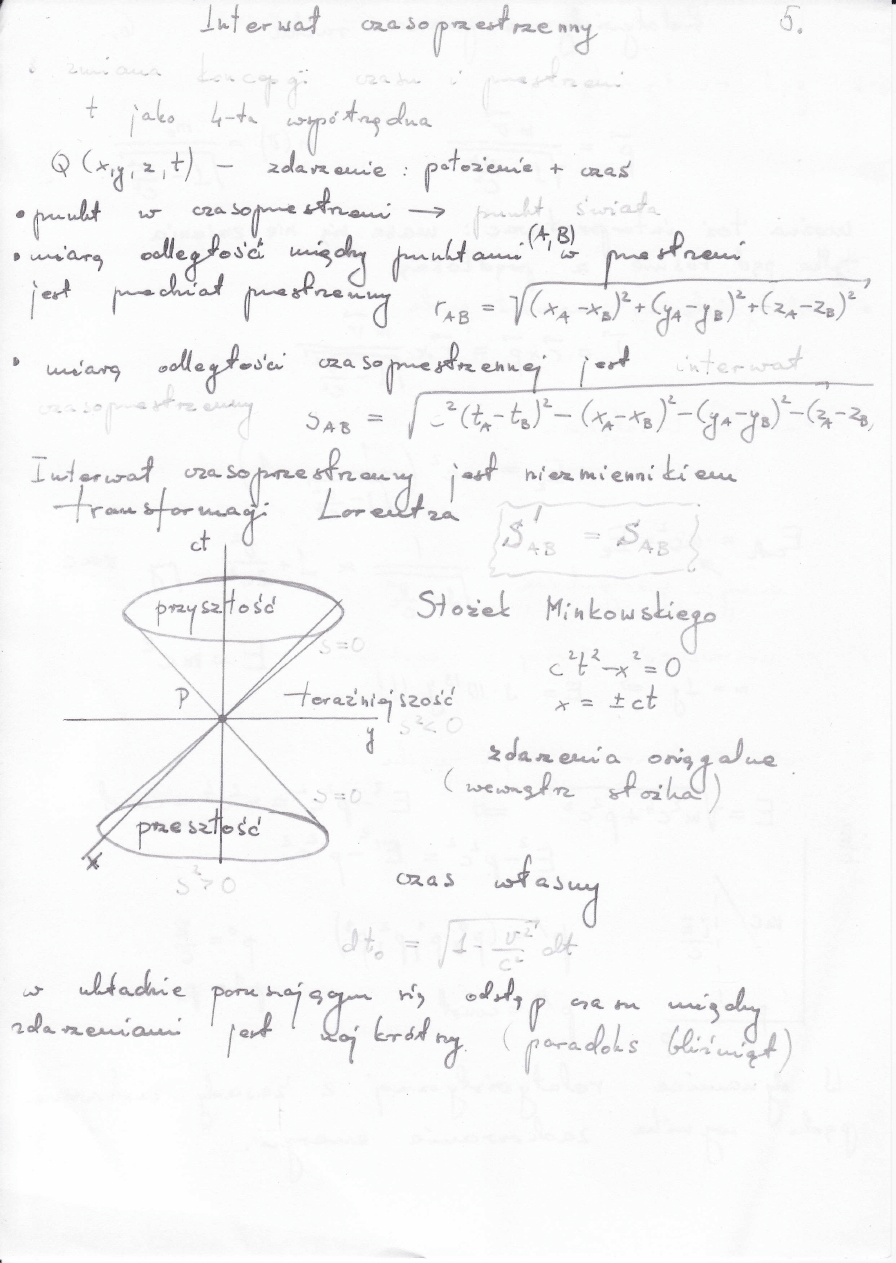 Interwał czasoprzestrzenny 5.
zmiana koncepcji czasu i przestrzeni
t jako 4-ta współrzędna
Q (x, y, z, t) – zdarzenie : położenie + czas
• punkt w czasoprzestrzeni → punkt świata
• miarą odległości między punktami (A, B) w przestrzeni
jest przedział przestrzenny r_AB = √((x_A – x_B)² + (y_A – y_B)² + (z_A – z_B)²)
• miarą odległości czasoprzestrzennej jest interwał
czasoprzestrzenny s_AB = √(c²(t_A – t_B)² – (x_A – x_B)² – (y_A – y_B)² – (z_A – z_B
Interwał czasoprzestrzenny jest niezmiennikiem
transformacji Lorentza S'_AB = S_AB
ct
przyszłość
s = 0
Stożek Minkowskiego
c²t² – x² = 0
x = ± ct
P
teraźniejszość
s² < 0
y
zdarzenia osiągalne
(wewnątrz stożka)
s = 0
przeszłość
x
s² > 0
czas własny
dt₀ = √(1 – v²/c²) dt
w układzie poruszającym się odstęp czasu między
zdarzeniami jest najkrótszy. (paradoks bliźniąt)